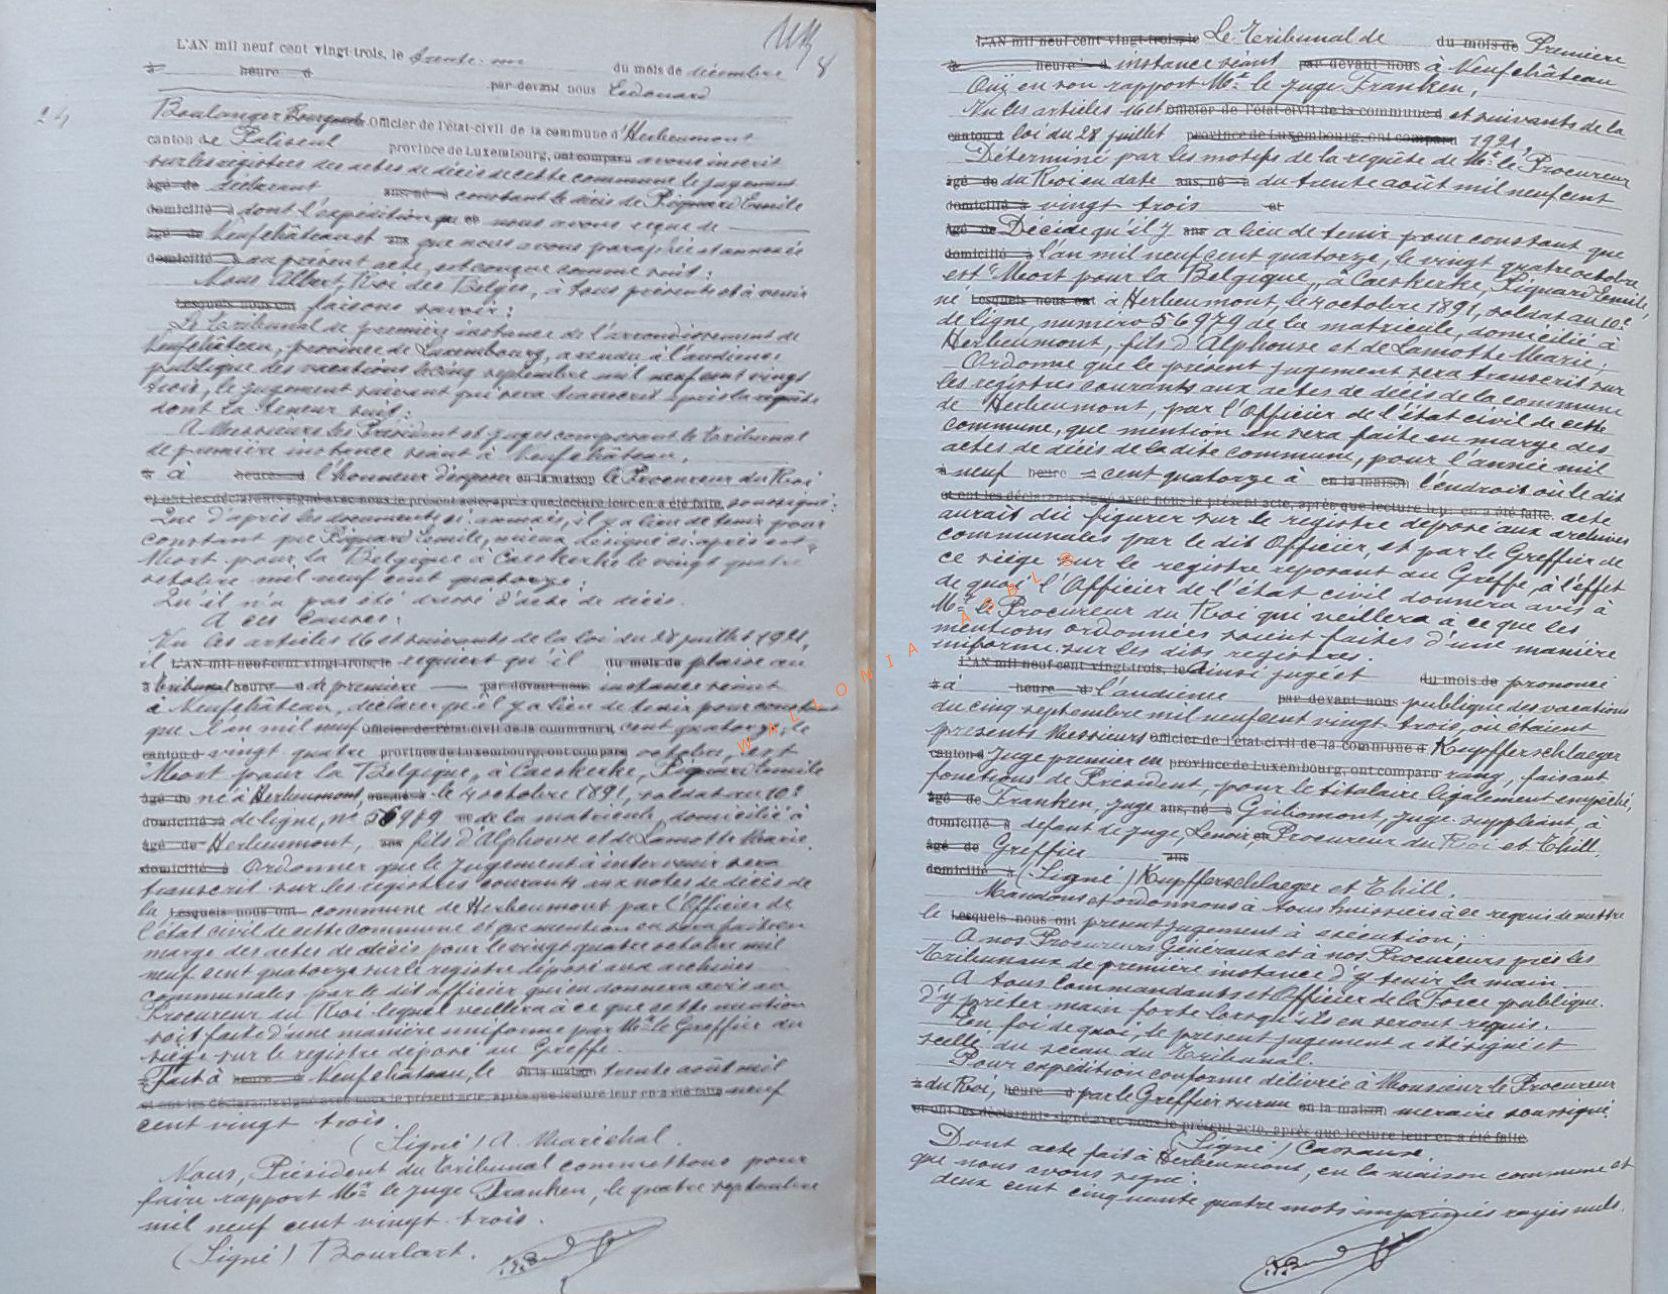 L'AN mil neuf cent vingt-trois, le trente-un du mois de décembre
à heure d par devant nous Edouard
24
Boulanger Officier de l'état-civil de la commune d'Herbeumont
canton de Paliseul province de Luxembourg, ont comparu avons inscrit
sur les registres des actes de décès de cette commune le jugement
âgé de déclarant ans, né à constatant le décès de Piquard Emile
domicilié à dont l'expédition et nous avons reçue de
âgé de Neufchâteau et ans que nous avons paraphée et annexée
domicilié à au présent acte, est conçue comme suit :
Nous Albert, Roi des Belges, à tous présents et à venir
Lesquels nous ont faisons savoir :
Le Tribunal de première instance de l'arrondissement de
Neufchâteau, province de Luxembourg, a rendu à l'audience
publique des vacations du cinq septembre mil neuf cent vingt
trois, le jugement suivant qui sera transcrit après la requête
dont la teneur suit :
A Messieurs les Président et juges composant le tribunal
de première instance séant à Neufchâteau.
à à heure d l'honneur d'exposer en la maison le Procureur du Roi
et ont les déclarants signé avec nous le présent acte, après que lecture leur en a été faite, soussigné :
Que d'après les documents ci-annexés, il y a lieu de tenir pour
constant que Piquard Emile, mieux désigné ci-après est
Mort pour la Belgique à Caeskerke le vingt quatre
octobre mil neuf cent quatorze ;
Qu'il n'a pas été dressé d'acte de décès.
A ces causes :
Vu les articles 16 et suivants de la loi du 28 juillet 1921,
il L'AN mil neuf cent vingt-trois, le requiert qu'il du mois de plaise au
à tribunal heure d de première par devant nous instance séant
à Neufchâteau, déclarer qu'il y a lieu de tenir pour constant
que l'an mil neuf Officier de l'état-civil de la commune d cent quatorze, le
canton d vingt quatre province de Luxembourg, ont comparu octobre, est
"Mort pour la Belgique" à Caeskerke, Piquard Emile
âgé de né à Herbeumont, ans, né à le 4 octobre 1891, soldat au 10e
domicilié à de ligne, no 56979 et de la matricule, domicilié à
âgé de Herbeumont, ans fils d'Alphonse et de Lamotte Marie.
domicilié à Ordonner que le jugement à intervenir sera
transcrit sur les registres courants aux actes de décès de
la Lesquels nous ont commune de Herbeumont par l'Officier de
l'état civil de cette commune et que mention en sera faite en
marge des actes de décès pour le vingt quatre octobre mil
neuf cent quatorze sur le registre déposé aux archives
communales par le dit officier qui en donnera avis au
Procureur du Roi lequel veillera à ce que cette mention
soit faite d'une manière uniforme par Mr le Greffier du
siège sur le registre déposé au Greffe.
à Fait à heure d Neufchâteau, le en la maison trente août mil
et ont les déclarants signé avec nous le présent acte, après que lecture leur en a été faite neuf
cent vingt trois.
(Signé) A. Maréchal.
Nous, Président du tribunal commettons pour
faire rapport Mr le juge Franken, le quatre septembre
mil neuf cent vingt-trois.
(Signé) Bourlart.
L'AN mil neuf cent vingt-trois, le Le Tribunal de du mois de Première
à heure d instance séant par devant nous à Neufchâteau
Ouï en son rapport Mr le juge Franken,
Vu les articles 16 et Officier de l'état-civil de la commune d et suivants de la
canton d loi du 28 juillet province de Luxembourg, ont comparu 1921,
Déterminé par les motifs de la requête de Mr le Procureur
âgé de du Roi en date ans, né à du trente août mil neuf cent
domicilié à vingt trois et
âgé de Décide qu'il y ans a lieu de tenir pour constant que
domicilié à l'an mil neuf cent quatorze, le vingt quatre octobre
est "Mort pour la Belgique" à Caeskerke, Piquard Emile,
né Lesquels nous ont à Herbeumont, le 4 octobre 1891, soldat au 10e
de ligne, numéro 56979 de la matricule, domicilié à
Herbeumont, fils d'Alphonse et de Lamotte Marie ;
Ordonne que le présent jugement sera transcrit sur
les registres courants aux actes de décès de la commune
de Herbeumont, par l'Officier de l'état civil de cette
commune, que mention en sera faite en marge des
actes de décès de la dite commune, pour l'année mil
à neuf heure cent quatorze à en la maison l'endroit où le dit
et ont les déclarants signé avec nous le présent acte, après que lecture leur en a été faite. acte
aurait dû figurer sur le registre déposé aux archives
communales par le dit Officier, et par le Greffier de
ce siège sur le registre reposant au Greffe, à l'effet
de quoi l'Officier de l'état civil donnera avis à
Mr le Procureur du Roi qui veillera à ce que les
mentions ordonnées soient faites d'une manière
uniforme sur les dits registres.
L'AN mil neuf cent vingt-trois, le Ainsi jugé et du mois de prononcé
à à heure d l'audience par devant nous publique des vacations
du cinq septembre mil neuf cent vingt trois, où étaient
présents Messieurs Officier de l'état-civil de la commune d Kupfferschlaeger
canton d Juge premier en province de Luxembourg, ont comparu rang, faisant
fonctions de Président, pour le titulaire légalement empêché,
âgé de Franken, juge ans, né à Gribomont, juge suppléant, à
domicilié à défaut de juge, Lenoir, et Procureur du Roi et Thill,
âgé de Greffier ans
domicilié à (Signé) Kupfferschlaeger et Thill.
Mandons et ordonnons à tous huissiers à ce requis de mettre
le Lesquels nous ont présent jugement à exécution ;
A nos Procureurs Généraux et à nos Procureurs près les
Tribunaux de première instance d'y tenir la main.
A tous Commandants et Officier de la Force publique
d'y prêter main forte lorsqu'ils en seront requis.
En foi de quoi, le présent jugement a été signé et
scellé du sceau du Tribunal.
Pour expédition conforme délivrée à Monsieur le Procureur
à du Roi, heure d par le Greffier en la maison soussigné
et ont les déclarants signé avec nous le présent acte, après que lecture leur en a été faite
(Signé)
Dont acte fait à Herbeumont, en la maison commune et
que nous avons signé.
deux cent cinquante quatre mots imprimés rayés nuls.
WALLONIA ASBL ©